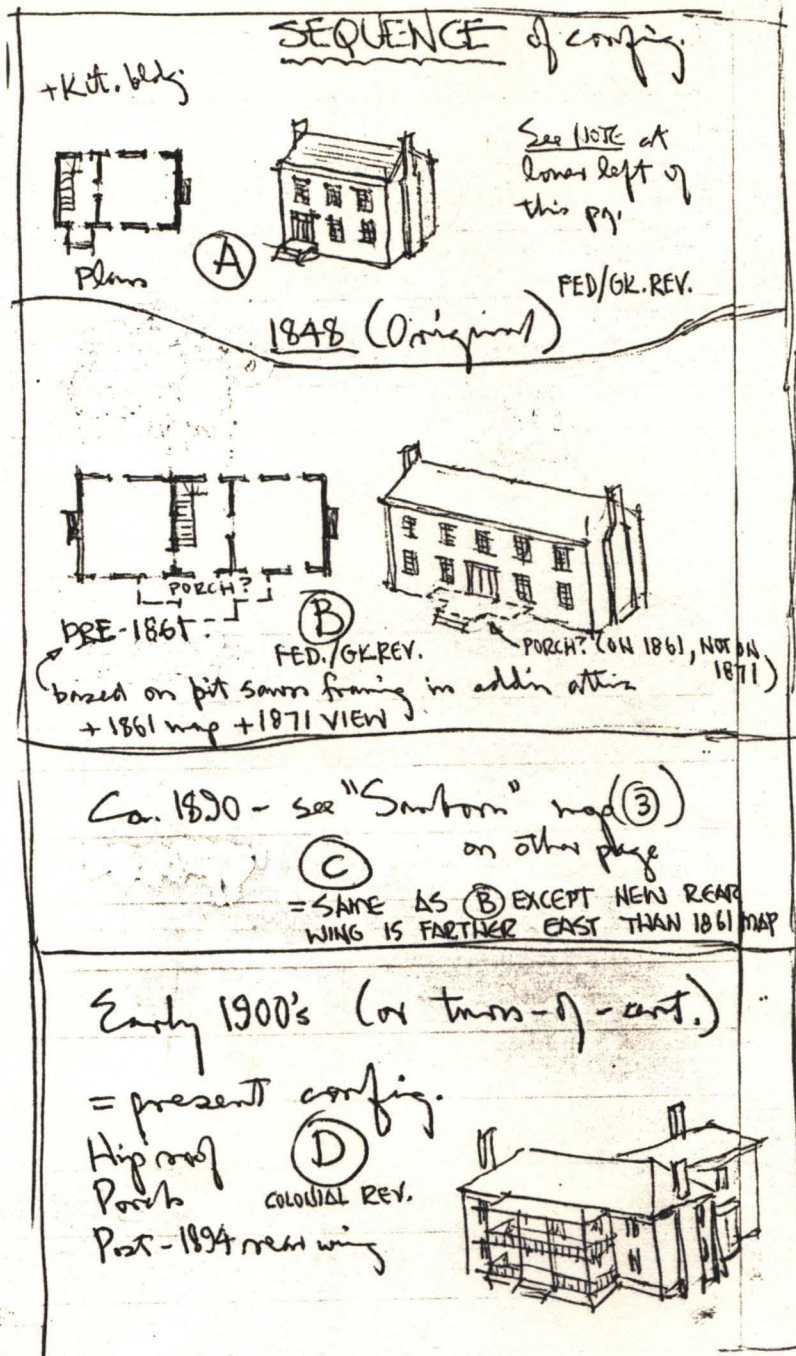 SEQUENCE of config.
+Kit. bldg.
See NOTE at
lower left of
this pg.
Plan
A
FED/GK.REV.
1848 (Original)
PORCH?
PRE-1861
B
FED./GK.REV.
PORCH? (ON 1861, NOT ON
1871)
based on pit sawn framing in add'n attic
+ 1861 map + 1871 VIEW
Ca. 1890 - see "Sanborn" map (3)
on other page
C
= SAME AS B EXCEPT NEW REAR
WING IS FARTHER EAST THAN 1861 MAP
Early 1900's (or turn-of-cent.)
= present config.
Hip roof
D
Porch
COLONIAL REV.
Post-1894 rear wing